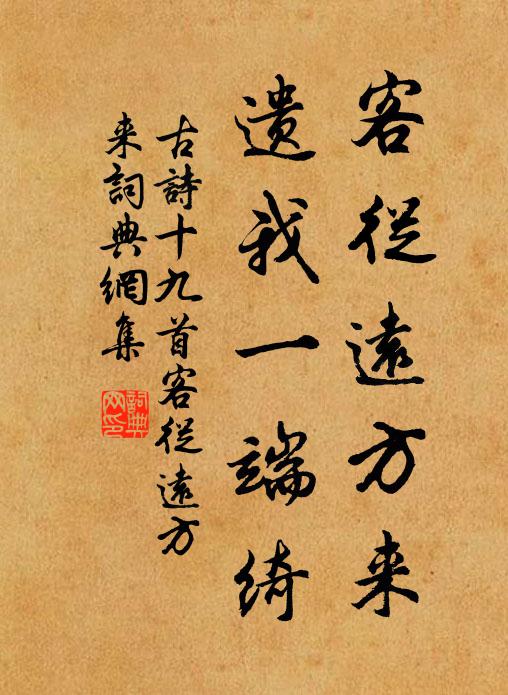 客從遠方来
遺我一端綺
古詩十九首客從遠方
来詞典網集
詞典
网印